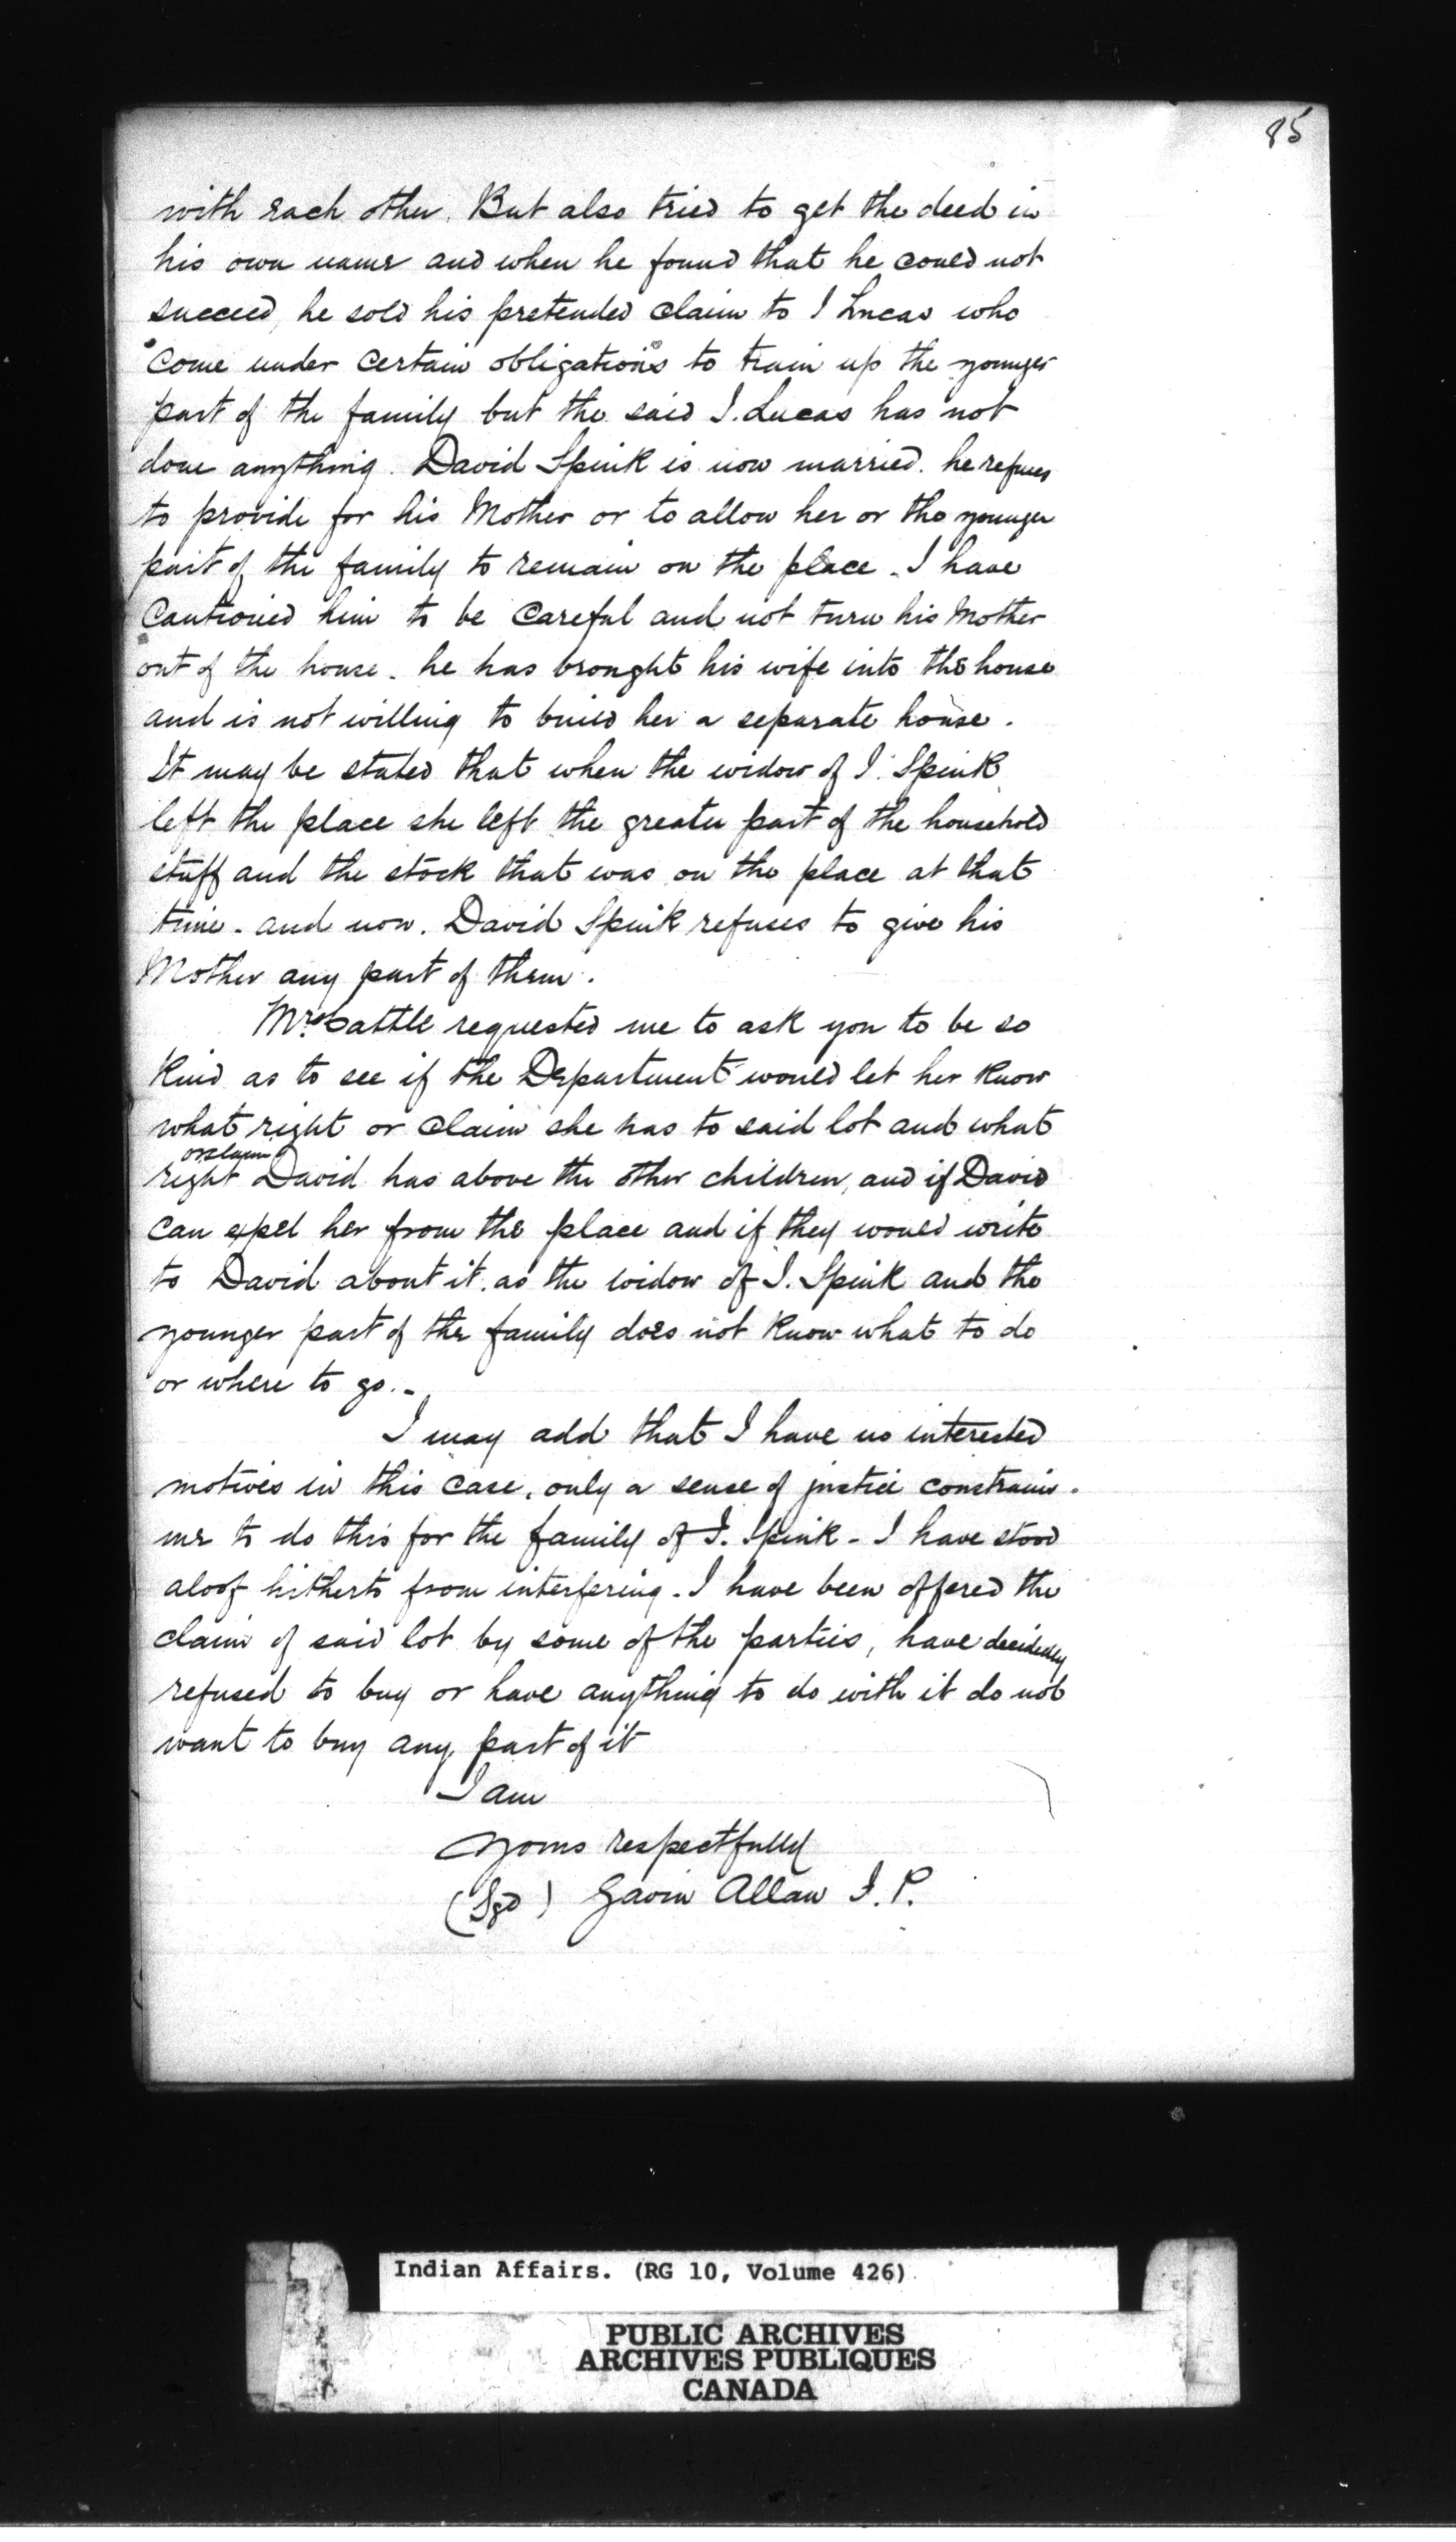 85
with each other. But also tried to get the deed in
his own name and when he found that he could not
succeed, he sold his pretended claim to I Lucas who
come under certain obligations to train up the younger
part of the family but the said I. Lucas has not
done anything. David Spink is now married. he refuses
to provide for his Mother or to allow her or the younger
part of the family to remain on the place. I have
Cautioned him to be careful and not turn his Mother
out of the house. he has brought his wife into the house
and is not willing to build her a separate house.
It may be stated that when the widow of I. Spink
left the place she left the greater part of the household
stuff and the stock that was on the place at that
time. and now. David Spink refuses to give his
Mother any part of them.
Mrs. requested me to ask you to be so
kind as to see if the Department would let her know
what right or claim she has to said lot and what
or claim
right David has above the other children, and if David
can expel her from the place and if they would write
to David about it. as the widow of I. Spink and the
younger part of the family does not know what to do
or where to go.-
I may add that I have no interested
motives in this case, only a sense of justice constrains
me to do this for the family of I. Spink - I have stood
aloof hitherto from interfering. I have been offered the
claim of said lot by some of the parties, have decidedly
refused to buy or have anything to do with it do not
want to buy any part of it
I am
Yours respectfully
(Sgd) Gavin Allan J.P.
Indian Affairs. (RG 10, Volume 426)
PUBLIC ARCHIVES
ARCHIVES PUBLIQUES
CANADA